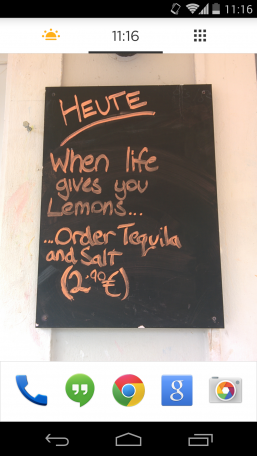 11:16
11:16
HEUTE
When life
gives you
Lemons...
...Order Tequila
and Salt
(2.90€)
g